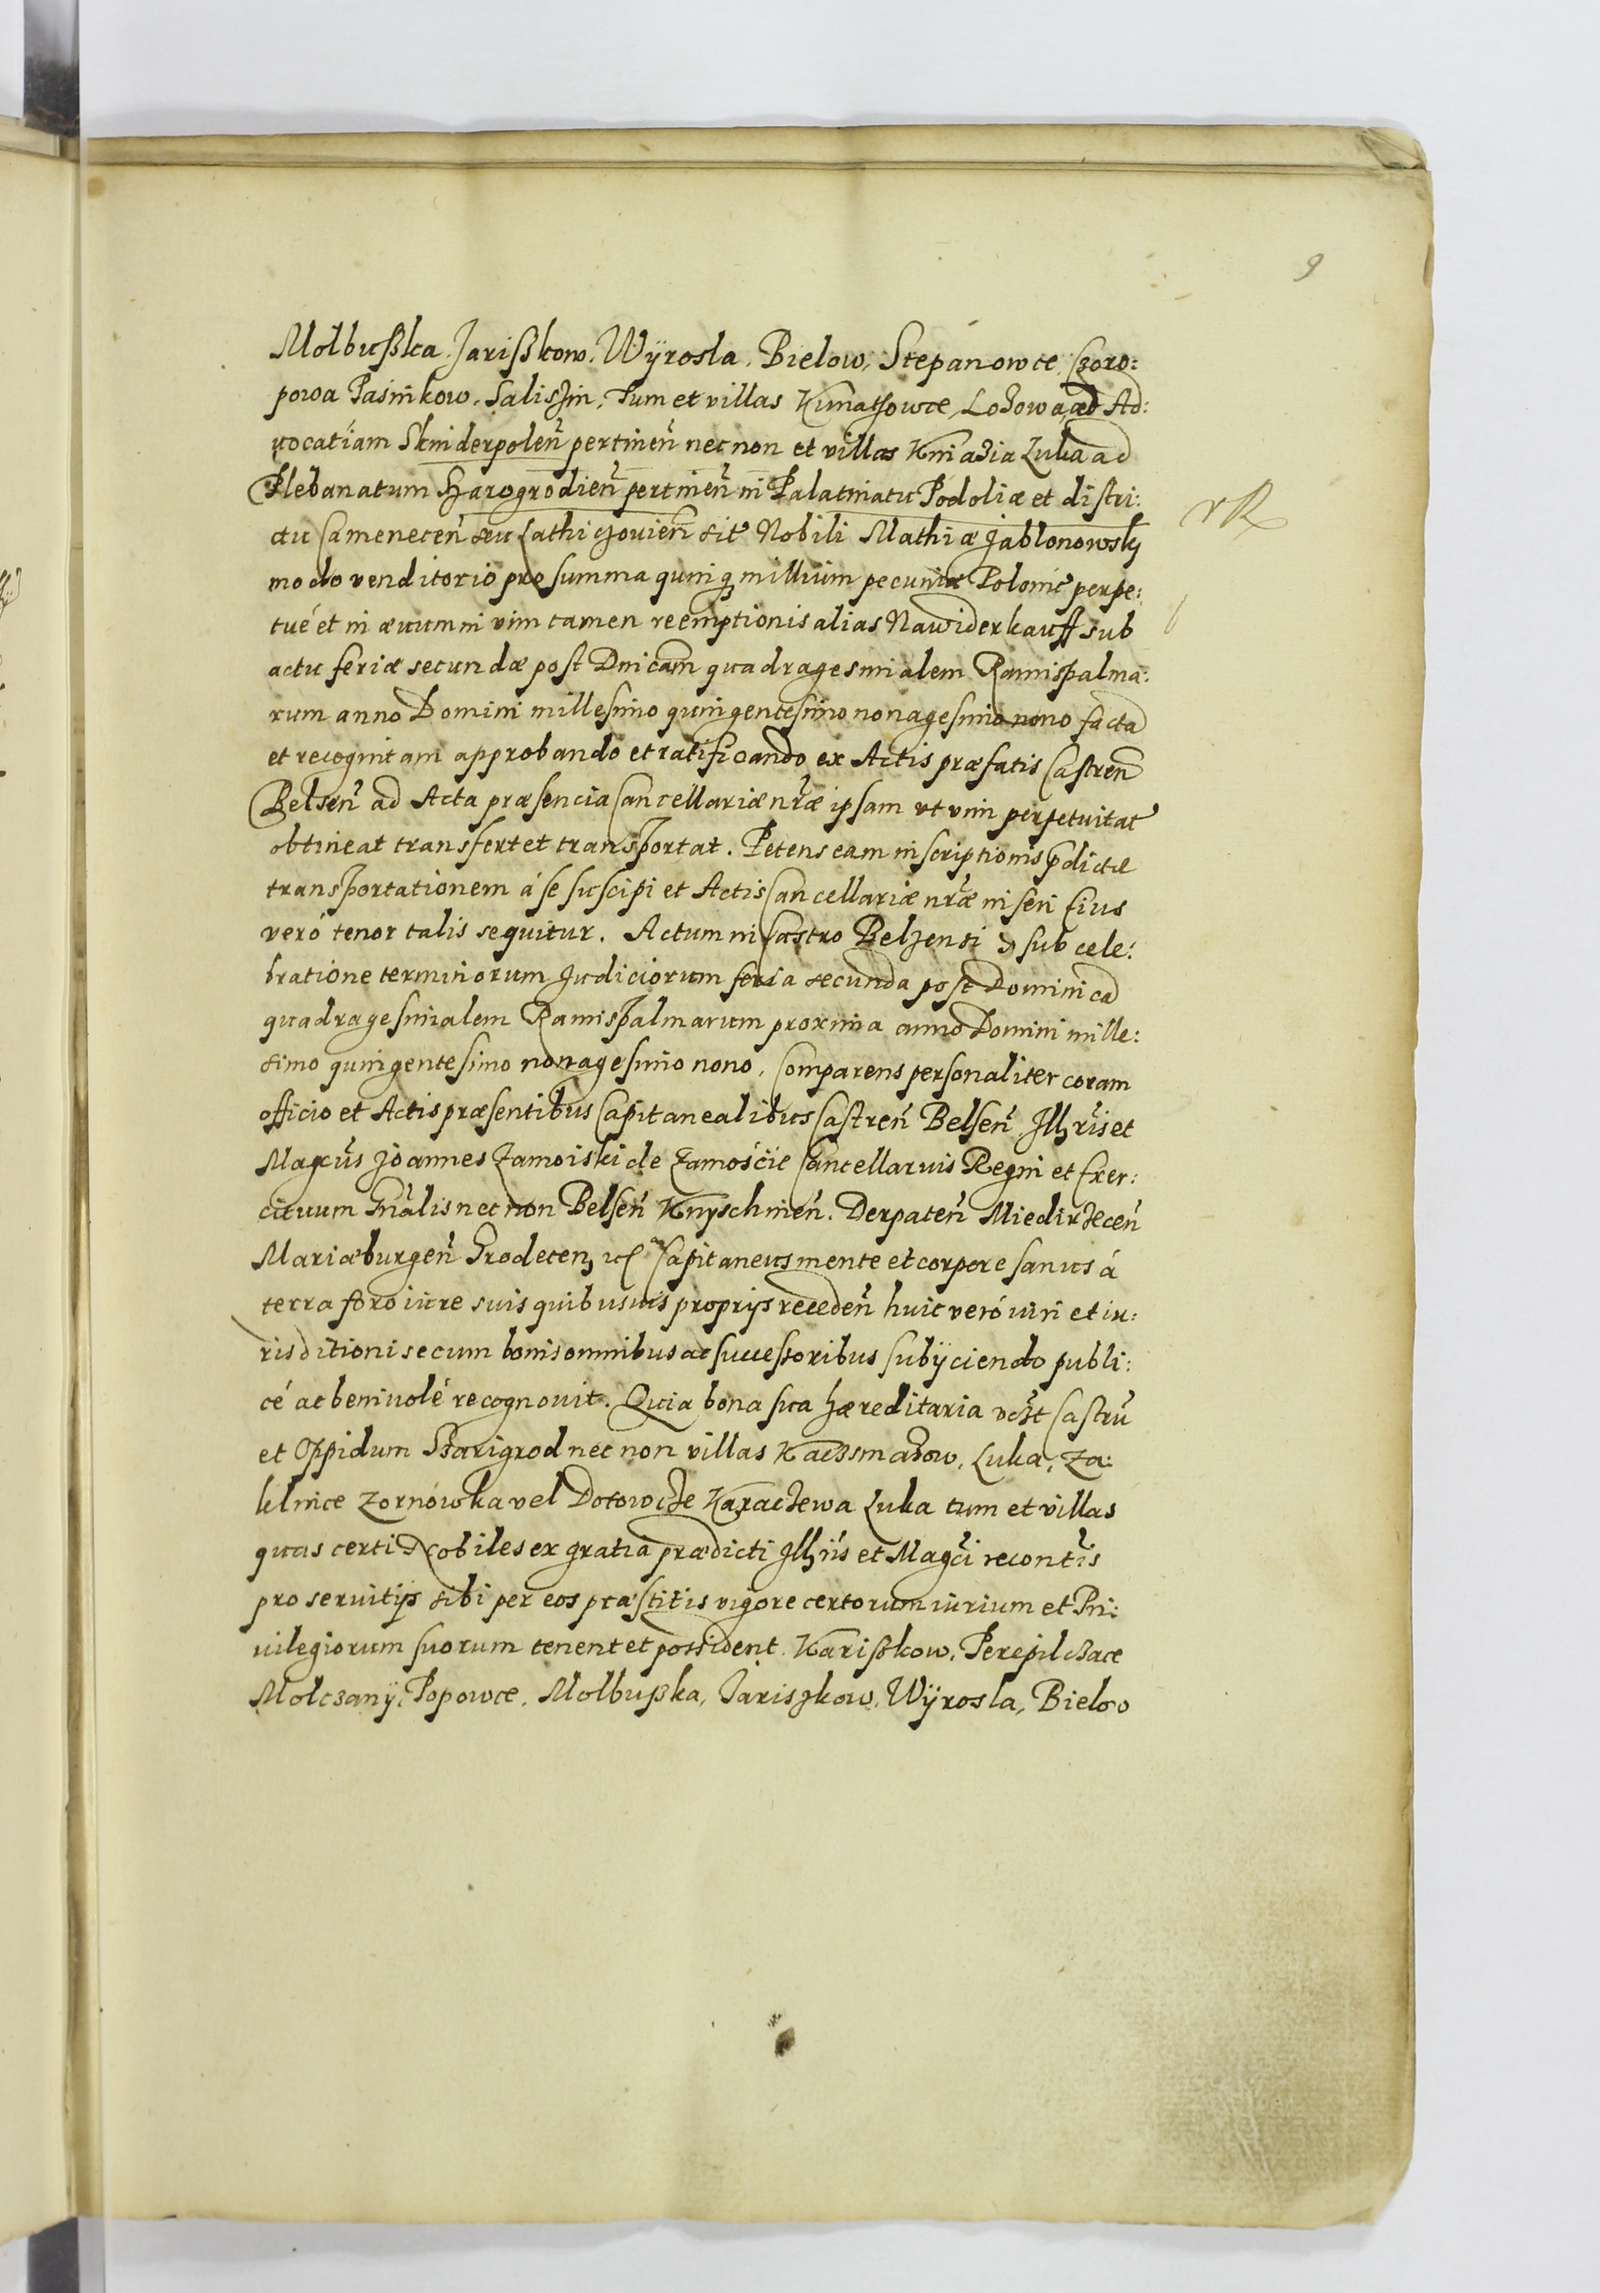 9
Molbußka, Jarißkow, Wÿrosla, Bielow, Stepanowce, Czoro:
powa Pasinkow, Saliszin, Tum et villas Kunatzowce, Lozowa, ad Ad:
uocatiam Skniderpoleñ pertineñ nec non et villas Kniazia Luka ad
Plebanatum Szarogrodieñ pertineñ in Palatinatu Podoliæ et distri:
ctu Cameneceñ seu Lathiczovieñ sit Nobili Mathiæ Jablonowsky
modo venditorio pro summa quinq millium pecuniæ Polonic perpe:
tué et in æuum in vim tamen reemptionis alias Nawiderkauff sub
actu feriæ secundæ post Dnicam quadragesimalem Ramispalma:
rum anno Domini millesimo quingentesimo nonagesimo nono factã
et recognitam approbando et ratificando ex Actis præfatis Castreñ
Belseñ ad Acta præsencia Cancellariæ nræ ipsam ut vim perpetuitat
obtineat transfert et transportat. Petens eam inscriptionis pdictæ
transportationem á se suscipi et Actis Cancellariæ nræ inseri Eius
veró tenor talis sequitur. Actum in Castro Belzensi sub cele:
bratione terminorum Judiciorum feria secunda post Dominicã
quadragesimalem Ramispalmarum proxima anno Domini mille:
simo quingentesimo nonagesimo nono, Comparens personaliter coram
officio et Actis præsentibus Capitanealibus Castreñ Belseñ Illris et
Magcus Joannes Zamoiski de Zamoście Cancellarius Regni et Exer:
cituum Gñalis nec non Belseñ Knyschineñ. Derpateñ Miedirzeceñ
Mariæburgeñ Grodecen Capitaneus mente et corpore sanus á
terra foro iure suis quibusuis proprijs recedeñ huic veró iuri et iu:
risditioni se cum bonis omnibus ac successoribus subÿciendo publi:
cé ac beniuolé recognovit. Quia bona sua hæreditaria vczt Castrũ
et Oppidum Szarigrod nec non villas Kaczmazow, Luka, Za:
lelnice Zornówka vel Dotowcze Karaczewa Luka tum et villas
quas certi Nobiles ex gratia prædicti Illris et Magci recontis
pro seruitijs sibi per eos præstitis vigore certorum iurium et Pri:
uilegiorum suorum tenent et possident. Karißkow, Perepilczace
Molczanÿ, Popowce, Molbußka, Jariszkow, Wÿrosla, Bielow